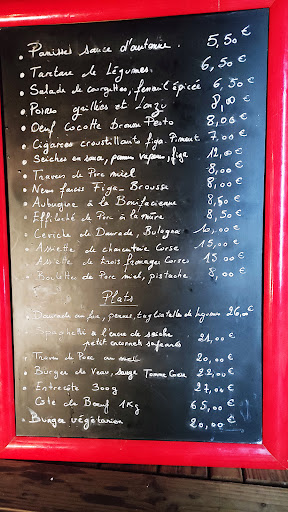 . Panisses sauce d'automne. 5,50€
. Tartare de Légumes. 6,50€
. Salade de courgettes, fenouil épicée 6,50€
. Poires grillées et Lonzu 8,00€
. Oeuf Cocotte Pesto 8,00€
. Cigares croustillants figa. Piment 7,00€
. Seiches en, figa 12,00€
. Travers de Porc miel 8,00€
. Nems farcis Figa-Brousse 8,00€
. Aubergine à la Bonifacienne 8,50€
. Effiloché de Porc à la mûre 8,50€
. Ceviche de Daurade, Bulogna 10,00€
. Assiette de charcuterie Corse 15,00€
. Assiette de trois fromages Corses 15,00€
. Boulettes de Porc miel, pistache 8,00€
Plats
. Daurade au four, Tagliatelle de légumes 26,00€
. Spaghetti à l'encre de seiche 21,00€
petit encornet safranés
. Travers de Porc au miel 20,00€
. Burger de Veau, sauge Tomme Corse 22,00€
. Entrecôte 300g 27,00€
. Côte de Bœuf 1Kg 65,00€
. Burger végétarien 20,00€